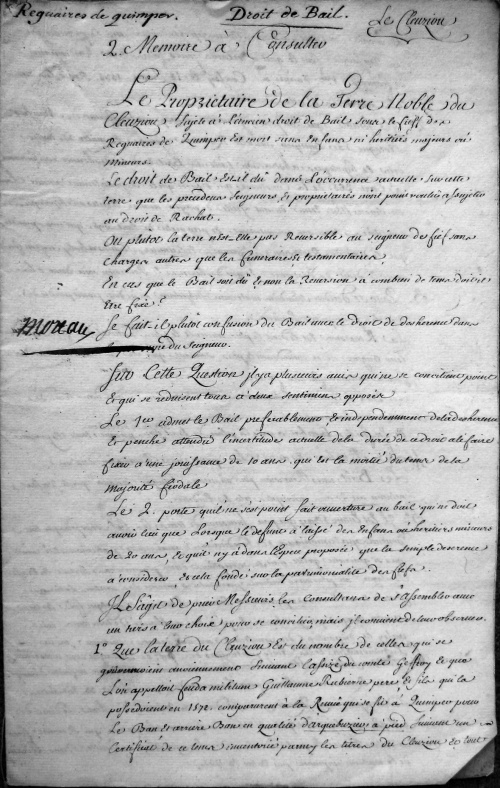 Reguaires de quimper. Droit de Bail. Le Cleuziou
2. Memoire à Consulter
Le Proprietaire de la Terre Noble du
Cleuziou sujete à l'ancien droit de Bail sous le fieff des
Reguaires de Quimper est mort sans enfans ni heritiers majeurs ou
mineurs.
Le droit de Bail est-il dû dans l'occurrence actuelle sur cette
terre que les precedens seigneurs et proprietaires n'ont point voulu assujetir
au droit de Rachat.
Ou plutot la terre n'est-elle pas Reversible au seigneur de fief sans
charges autres que les funeraires & testamentaires.
En cas que le Bail soit dû et non la Reversion à combien de tems doit-il
Etre fixé?
Moreau
Se fait-il plutot confusion du Bail avec le droit de desherence dans
du seigneur.
Sur Cette Question il y a plusieurs avis qui ne se concilient point
Et qui se reduisent tous à deux sentimens opposés
Le 1er admet le Bail preferablement et independamment de la desherence
Et penche attendu l'incertitude actuelle de la durée de ce droit à le faire
fixer à une jouissance de 10 ans qui est la moitié du tems de la
majorité feodale
Le 2. porte qu'il ne s'est point fait ouverture au bail qui ne doit
avoir lieu que Lorsque le defunt a laissé des Enfans ou heritiers mineurs
de 20 ans, & qu'il n'y a dans l'Espece proposée que la simple desherence
à considerer, & cela fondé sur la patrimonialité des fiefs.
Il s'agit de prier Messieurs les Consultans de s'assembler avec
un tiers à leur choix pour se concilier mais il convient de leur observer.
1o Que la terre du Cleuziou Est du nombre de celles qui se
gouvernoient anciennement suivant l'assize du comte Geffroy & que
l'on appelloit feuda militum Guillaume Rubiern pere & fils qui la
possedoient en 1572. comparurent à la Revue qui se fit à Quimper pour
Le Ban et arriere Ban en qualité d'arquebuziers à pied suivant un
Certificat de ce tems inventorié parmy les titres du Cleuziou & tout